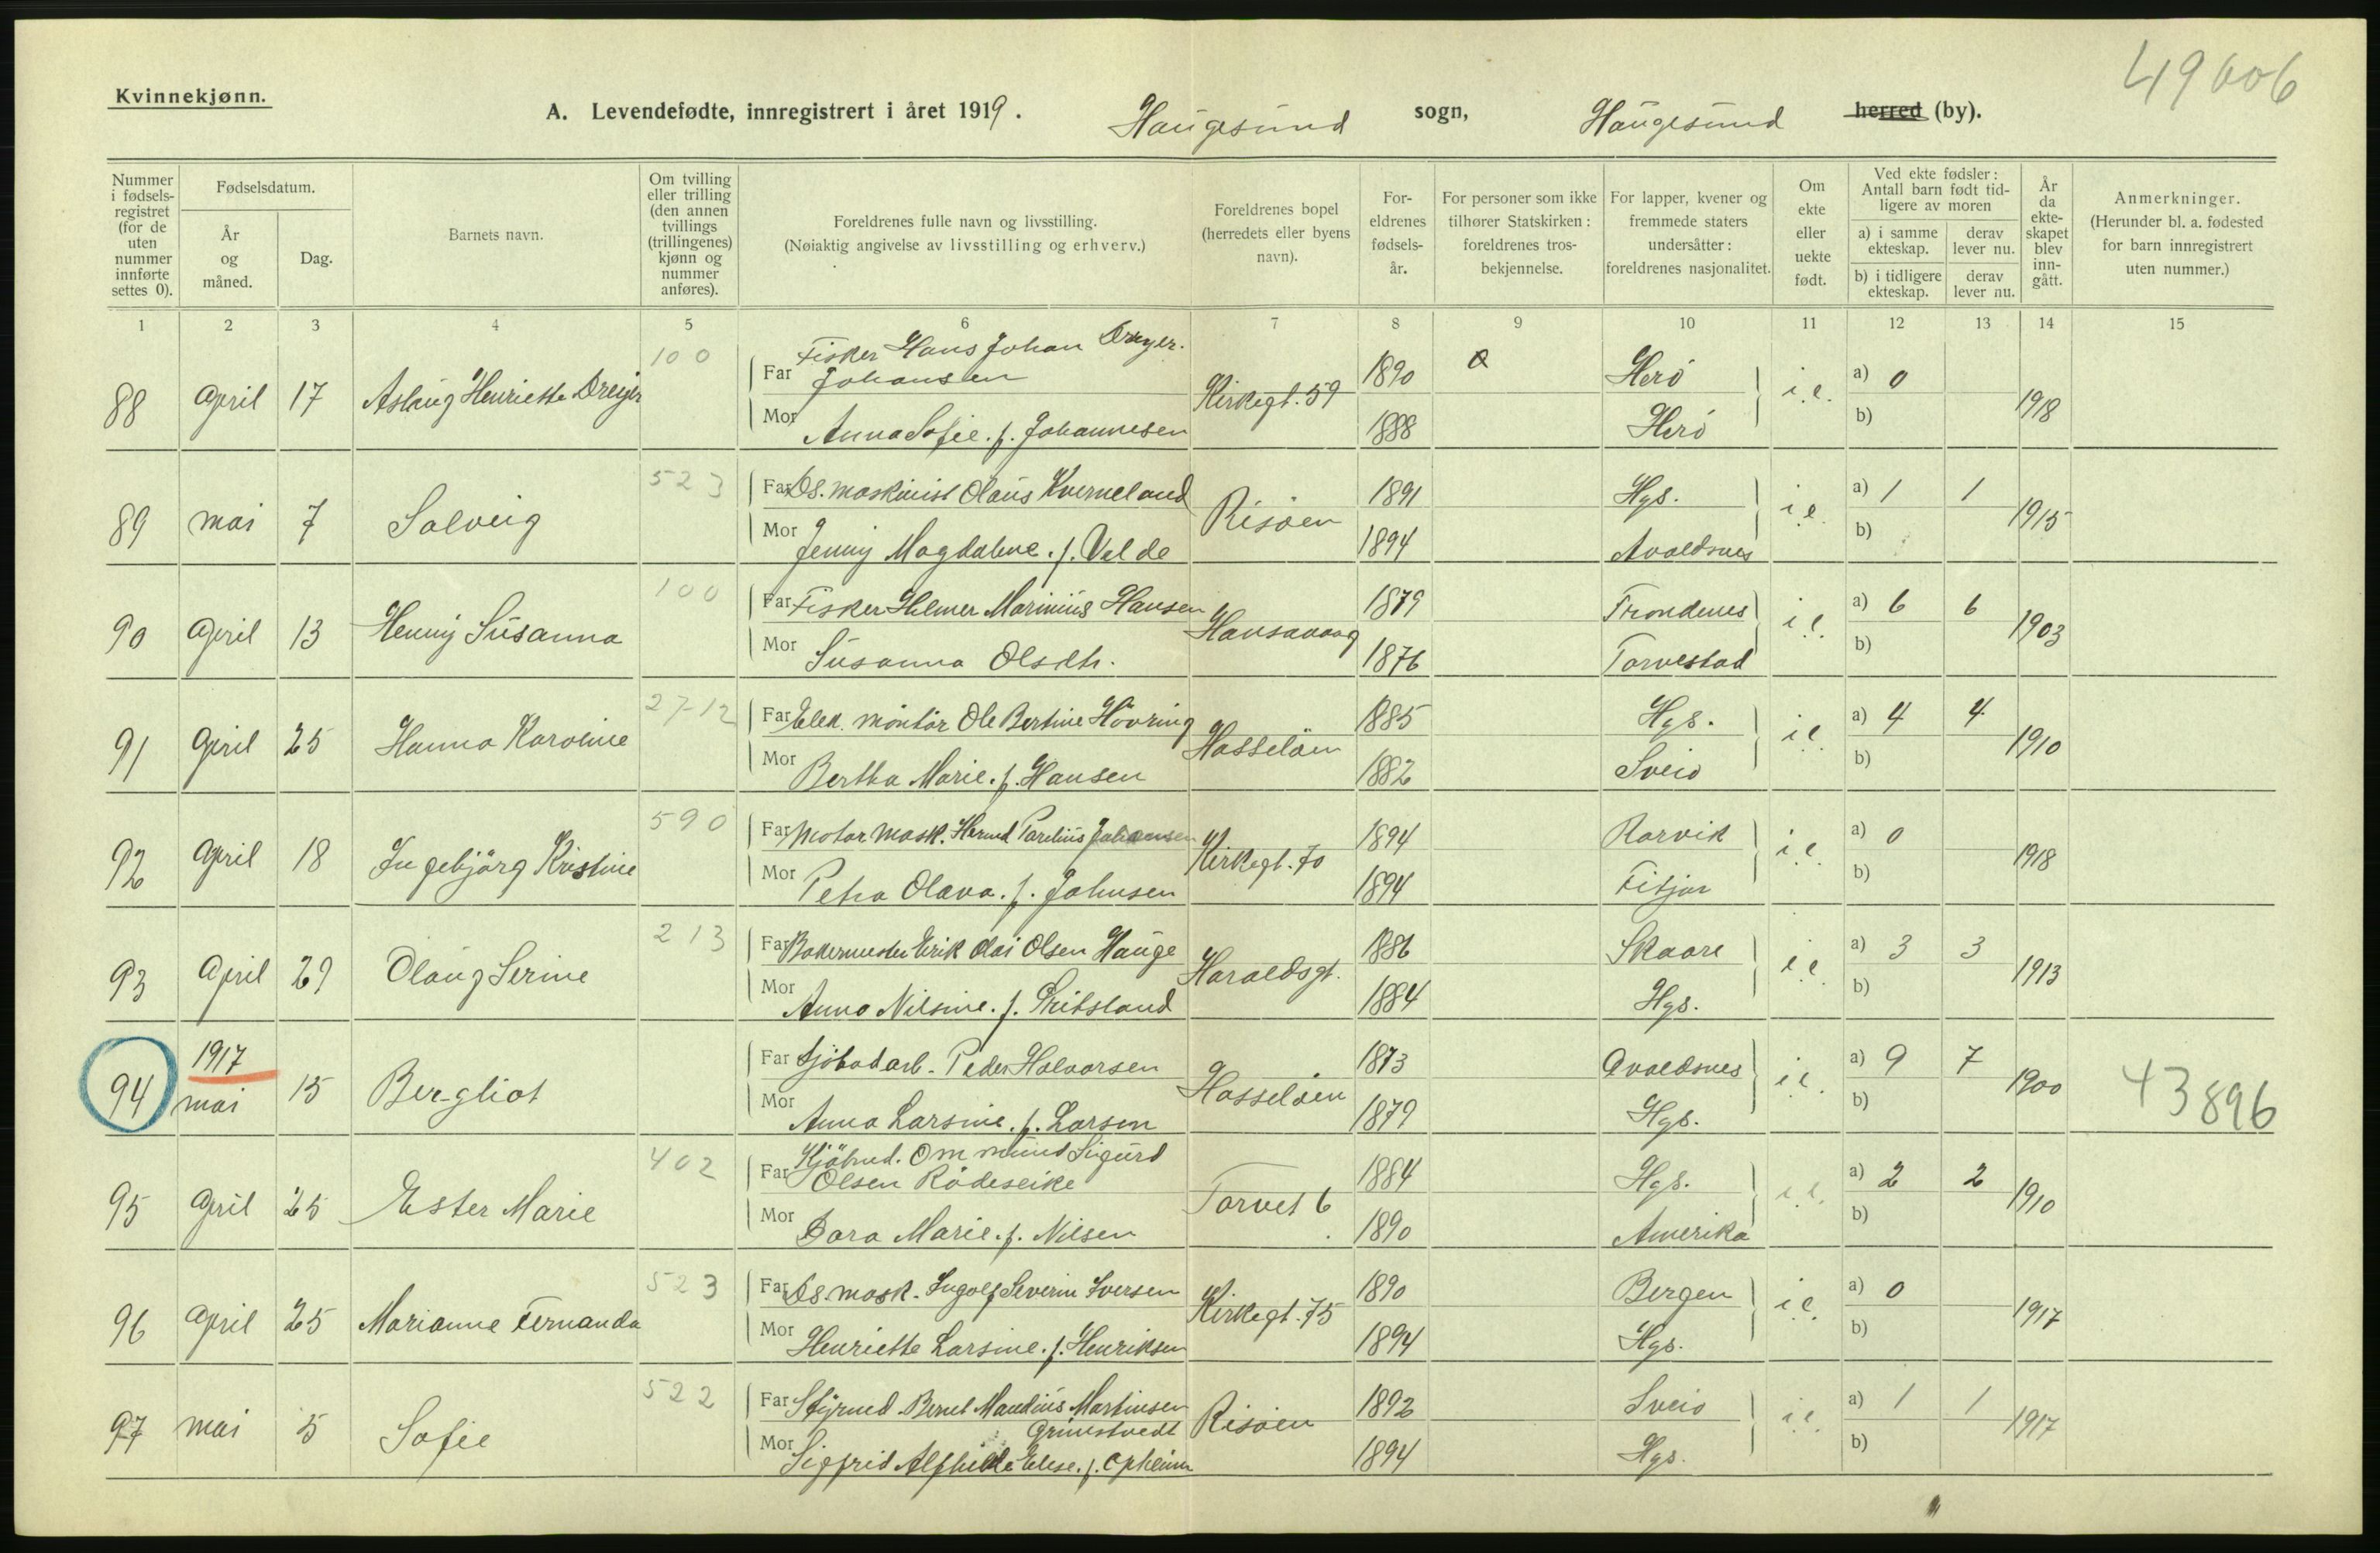 49606
Kvinnekjønn.
A. Levendefødte, innregistrert i året 1919. Haugesund sogn, Haugesund herred (by).
Nummer i fødsels-registret (for de uten nummer innførte settes 0).
Fødselsdatum.
År og måned.
Dag.
Barnets navn.
Om tvilling eller trilling (den annen tvillings (trillingenes) kjønn og nummer anføres).
Foreldrenes fulle navn og livsstilling.
(Nøiaktig angivelse av livsstilling og erhverv.)
Foreldrenes bopel (herredets eller byens navn).
For-eldrenes fødsels-år.
For personer som ikke tilhører Statskirken: foreldrenes tros-bekjennelse.
For lapper, kvener og fremmede staters undersåtter: foreldrenes nasjonalitet.
Om ekte eller uekte født.
Ved ekte fødsler: Antall barn født tid-ligere av moren
a) i samme ekteskap.
derav lever nu.
b) i tidligere ekteskap.
derav lever nu.
År da ekte-skapet blev inn-gått.
Anmerkninger.
(Herunder bl. a. fødested for barn innregistrert uten nummer.)
1 2 3 4 5 6 7 8 9 10 11 12 13 14 15
88 April 17 Aslaug Henriette Dreyer 100
Far Fisker Hans Johan Dreyer. Johansen
Mor Anna Sofie. f. Johannesen
Kirkegt. 59 1890 1888 Herö Herö i.e. a) 0 b) 1918
89 mai 7 Solveig 523
Far Ds. maskinist Olaus Kverneland
Mor Jenny Magdalene. f. Valde
Risöen 1891 1894 Hgs. Avaldsnes i.e. a) 1 1 b) 1915
90 April 13 Henny Susanna 100
Far Fisker Helmer Marinius Hansen
Mor Susanna Olsdtr.
Hansavaag 1879 1876 Trondenes Torvestad i.e. a) 6 6 b) 1903
91 April 25 Hanna Karoline 27-12
Far Elek. montör Ole Bertine Hövring
Mor Bertha Marie. f. Hansen
Hasselöen 1885 1882 Hgs. Sveio i.e. a) 4 4 b) 1910
92 April 18 Ingebjörg Kristine 590
Far Motor mask. Parelius Johannsen
Mor Petra Olava. f. Johnsen
Kirkegt. 70 1894 1894 Rorvik Fitjar i.e. a) 0 b) 1918
93 April 29 Olaug Serine 213
Far Bakermester Erik Olai Olsen Hauge
Mor Anna Nilsine. f.
Haraldsgt. 1886 1884 Skaare Hgs. i.e. a) 3 3 b) 1913
94 1917 mai 15 Bergliot
Far Peder Halvorsen
Mor Anna Larsine. f. Larsen
Hasselöen 1873 1879 Avaldsnes Hgs. i.e. a) 9 7 b) 1900 43896
95 April 25 Ester Marie 402
Far Kjöbmd. Ommund Sigurd Olsen Rödeseike
Mor Dora Marie. f. Nilsen
Torvet 6 1884 1890 Hgs. Amerika i.e. a) 2 2 b) 1910
96 April 25 Marianne Fernanda 523
Far Ds. mask. Ingolf Severin Iversen
Mor Henriette Larsine. f. Henriksen
Kirkegt. 75 1890 1894 Bergen Hgs. i.e. a) 0 b) 1917
97 mai 5 Sofie 522
Far Styrmd. Bernt Mandius Martinsen Grinstvedt
Mor Sigfrid Alfhilde Elise. f. Opheim
Risöen 1892 1894 Sveio Hgs. i.e. a) 1 1 b) 1917